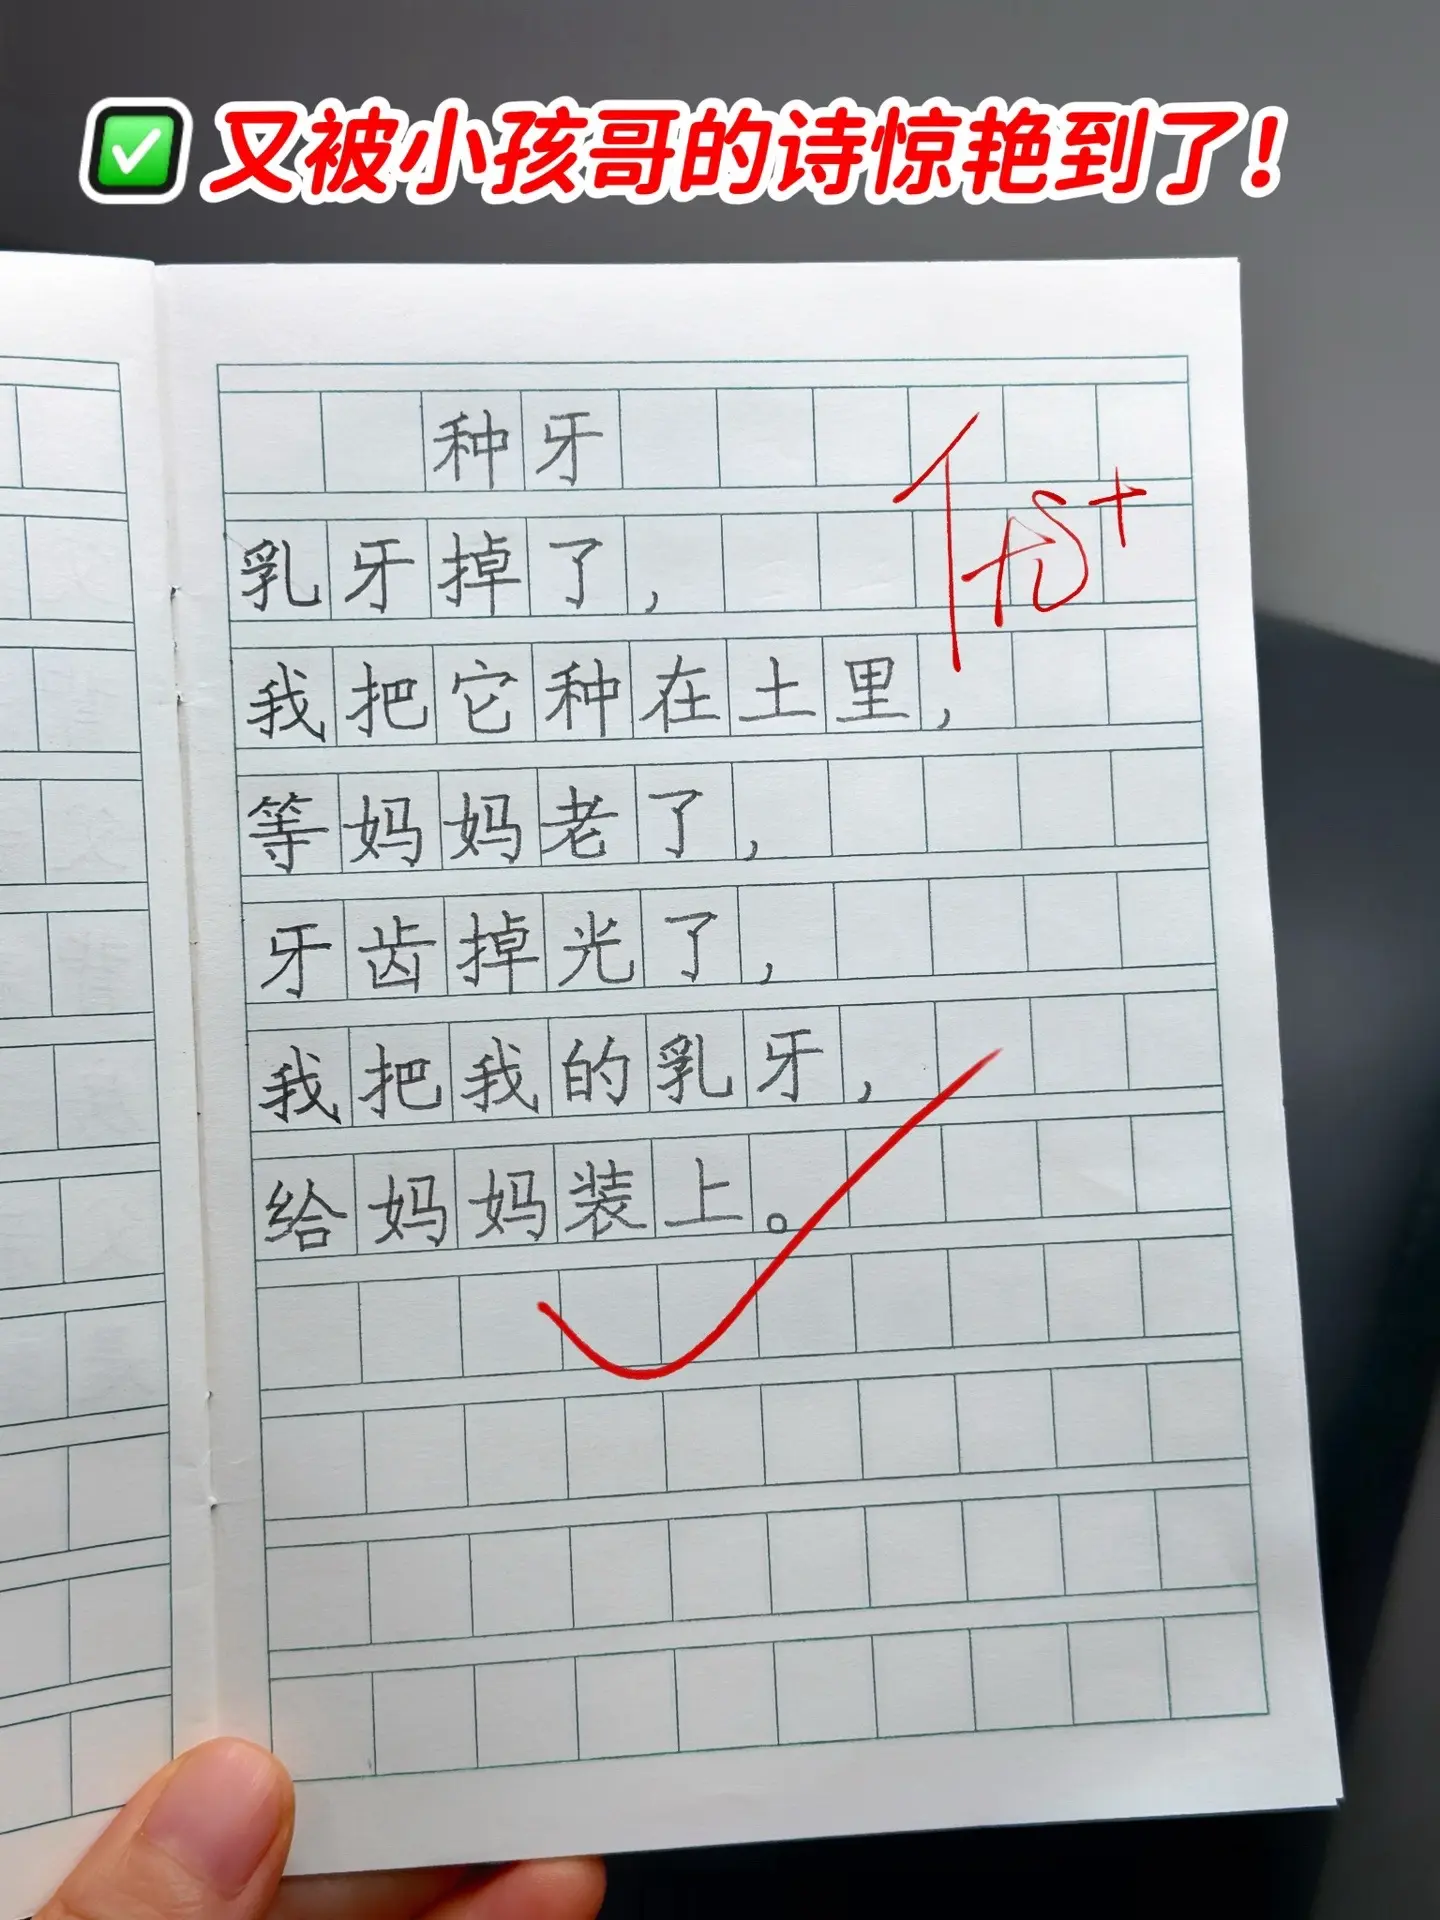 ✅又被小孩哥的诗惊艳到了!
种牙
优+
乳牙掉了,
我把它种在土里,
等妈妈老了,
牙齿掉光了,
我把我的乳牙,
给妈妈装上。